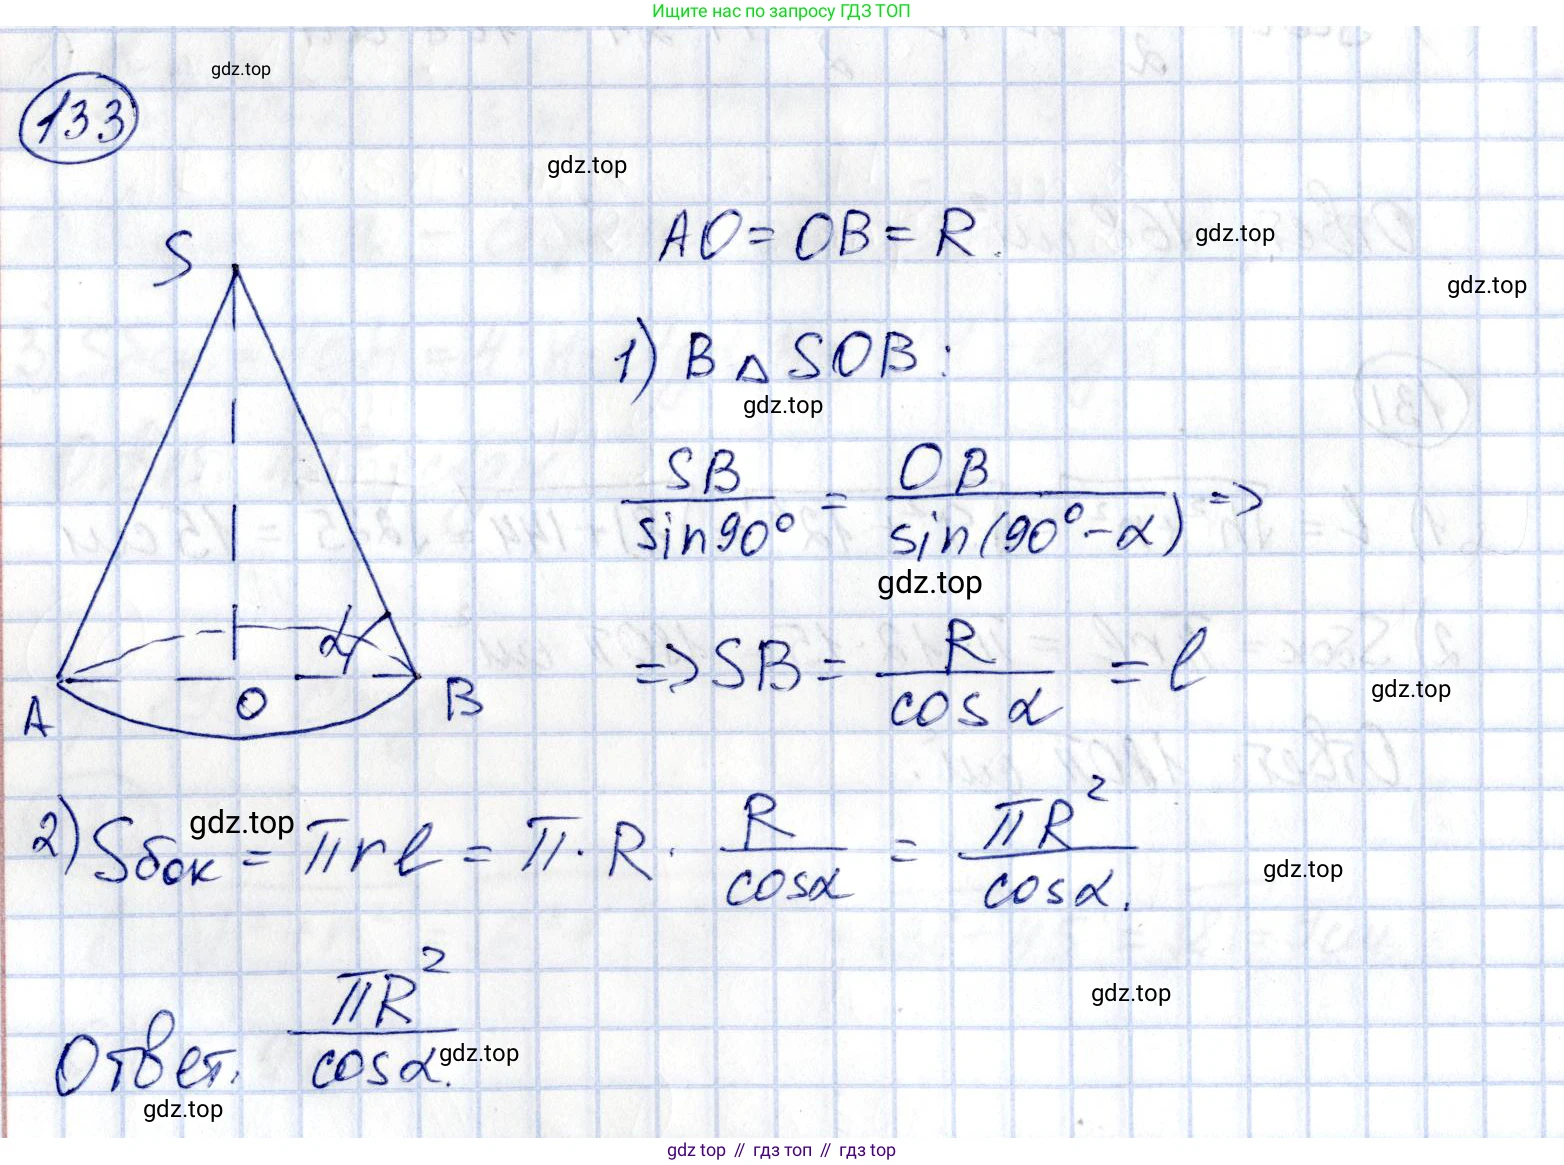 Ищите нас по запросу ГДЗ ТОП
gdz.top
133
gdz.top
S
AO = OB = R.
gdz.top
gdz.top
1) В △ SOB:
gdz.top
SB / sin 90° = OB / sin(90° - α) =>
gdz.top
α
=> SB = R / cos α = l
gdz.top
A
O
B
2) Sбок = πrl = π · R · R / cos α = πR² / cos α.
gdz.top
gdz.top
gdz.top
Ответ: πR² / cos α.
gdz.top
gdz.top
gdz.top // гдз топ // гдз.top